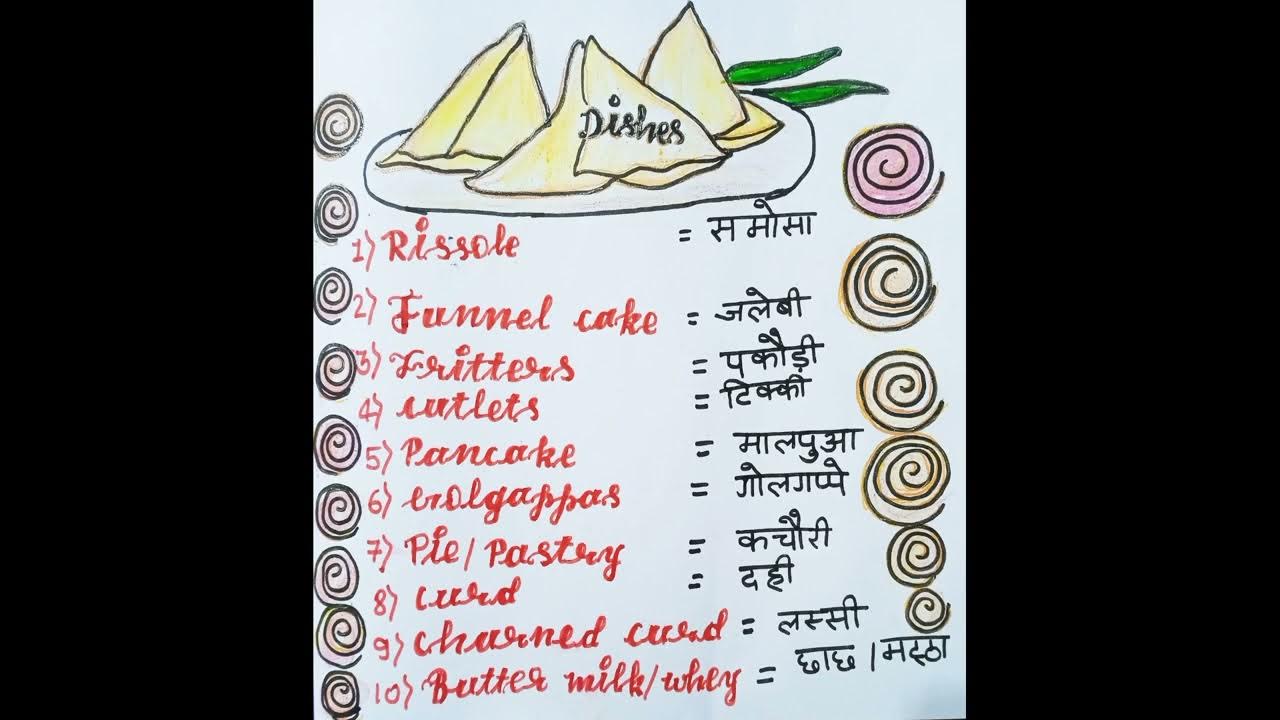 Dishes
1) Rissole = समोसा
2) Funnel cake = जलेबी
3) Fritters = पकौड़ी
4) cutlets = टिक्की
5) Pancake = मालपुआ
6) Golgappas = गोलगप्पे
7) Pie/Pastry = कचौरी
8) curd = दही
9) Churned curd = लस्सी
10) Butter milk/whey = छाछ/मठ्ठा